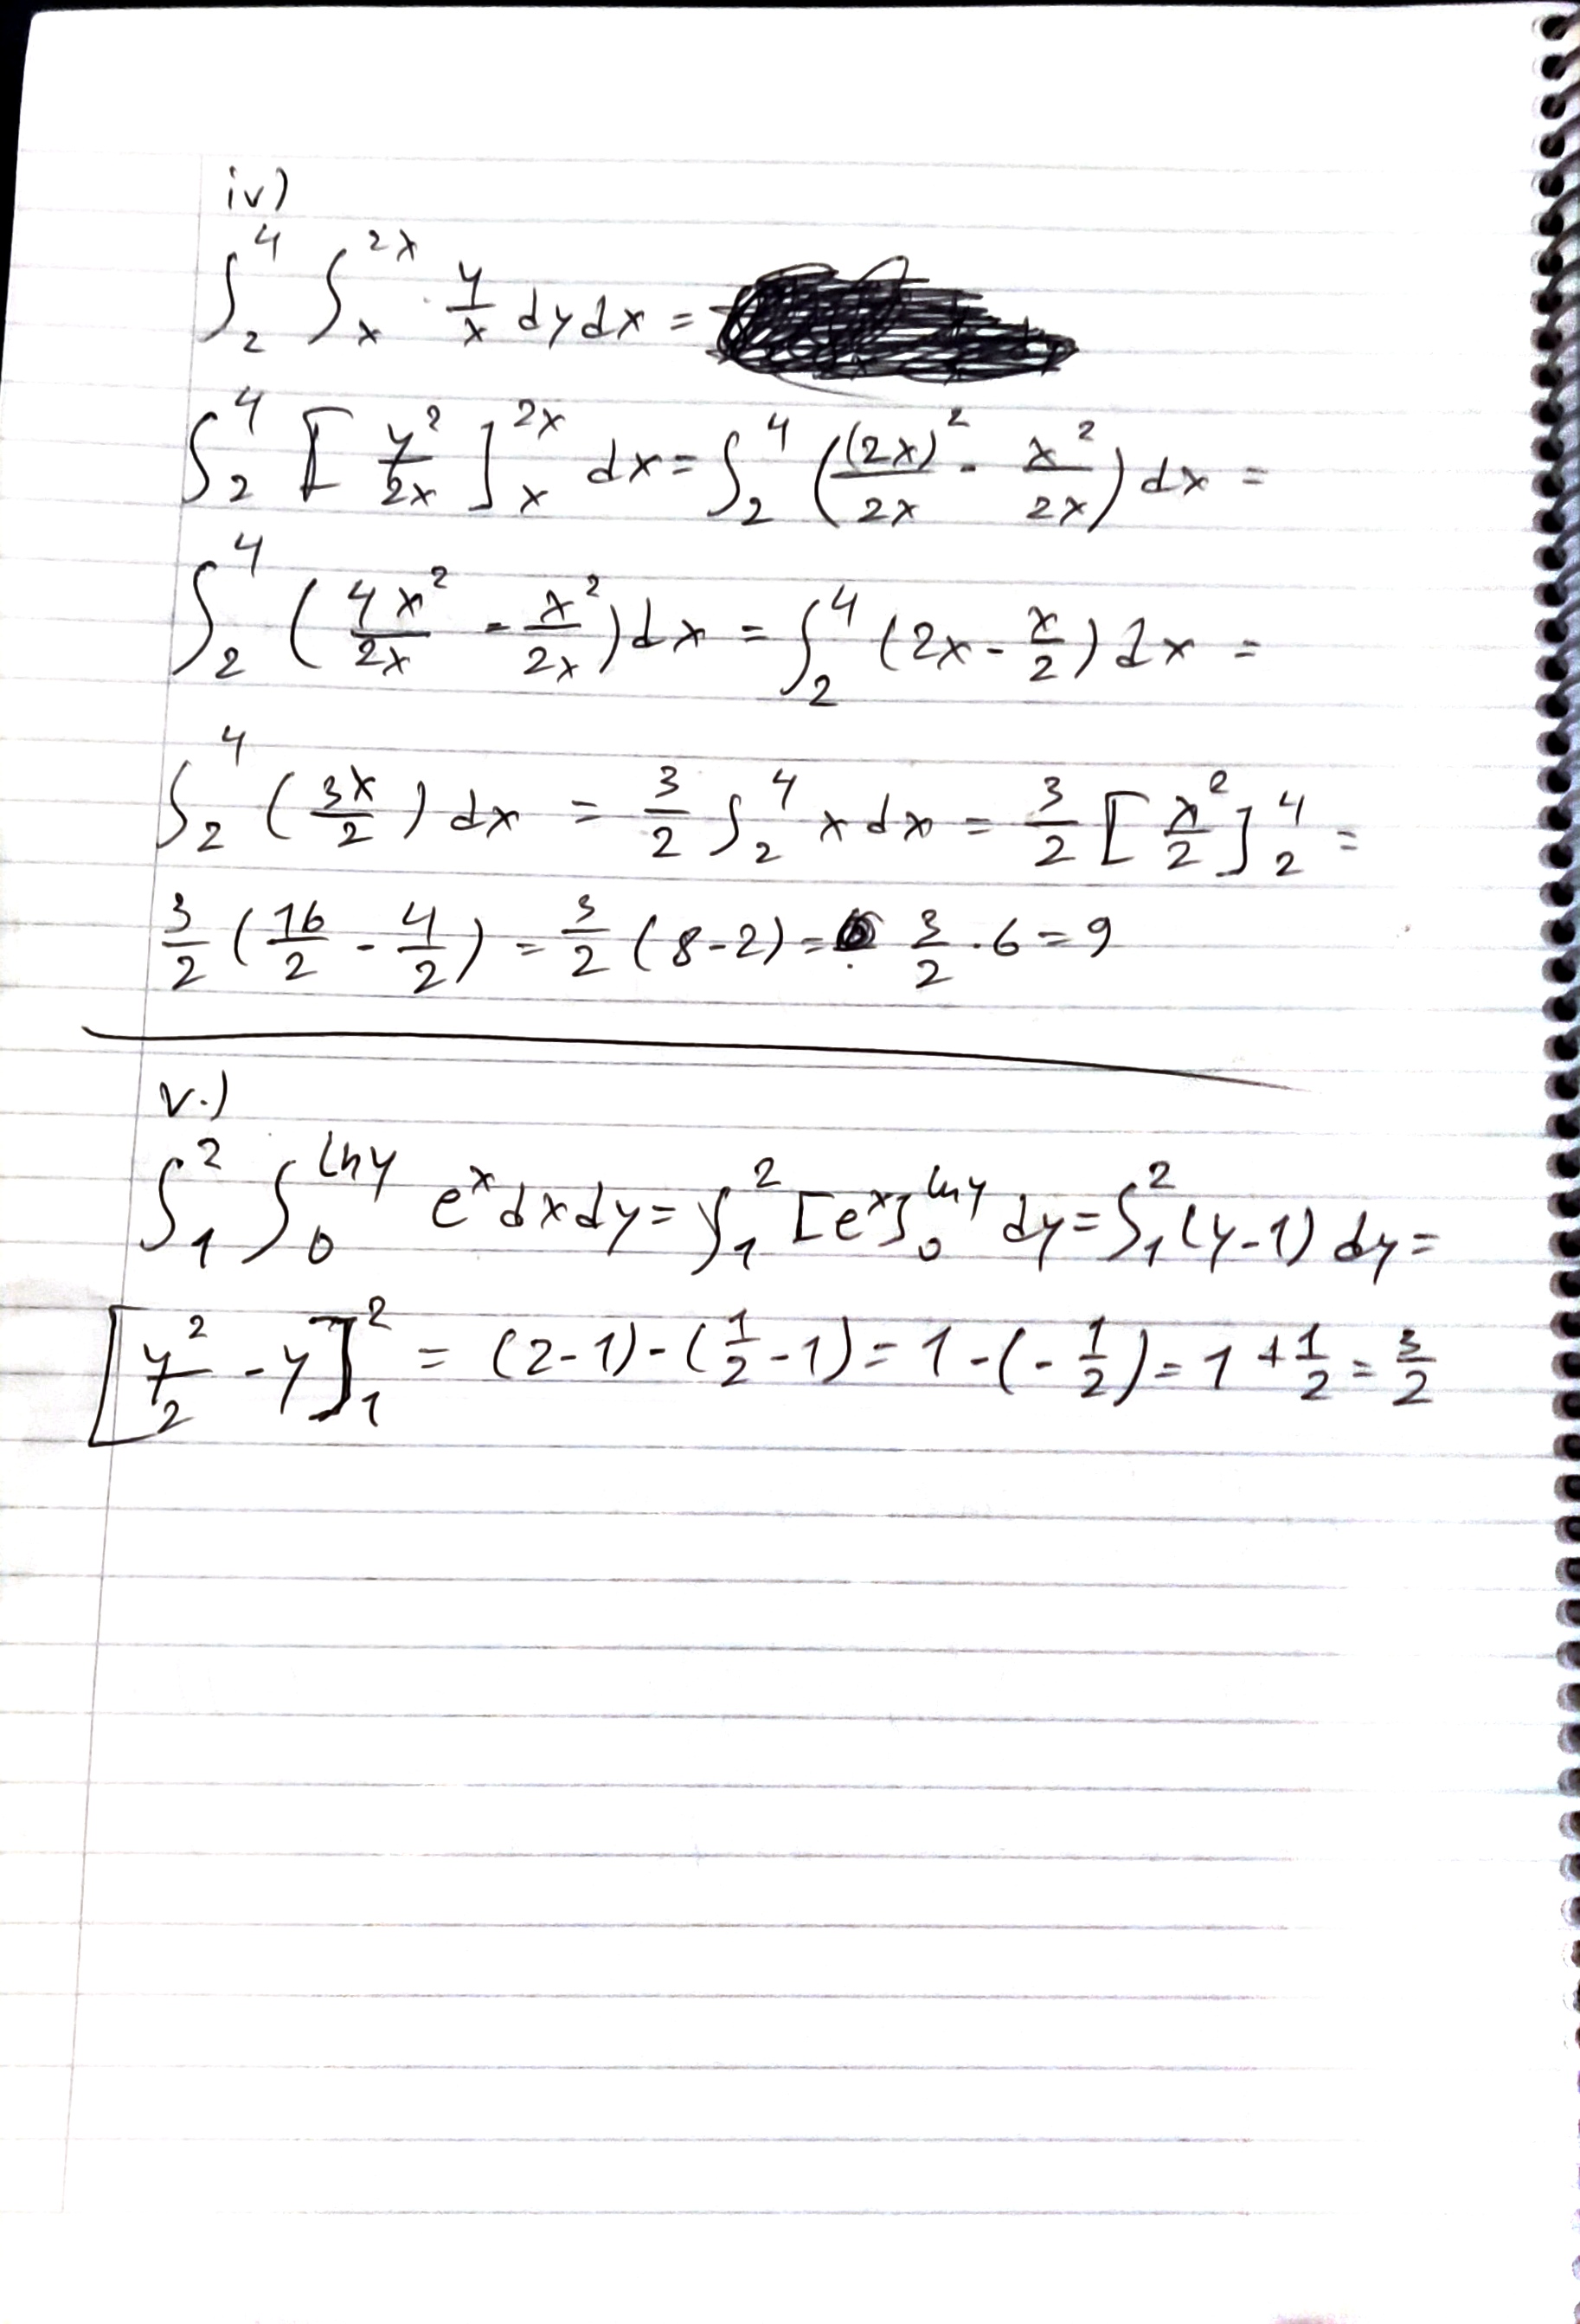 iv)
∫₂⁴ ∫ₓ²ˣ y/x dy dx =
∫₂⁴ [y²/2x]ₓ²ˣ dx = ∫₂⁴ ((2x)²/2x - x²/2x) dx =
∫₂⁴ (4x²/2x - x²/2x) dx = ∫₂⁴ (2x - x/2) dx =
∫₂⁴ (3x/2) dx = 3/2 ∫₂⁴ x dx = 3/2 [x²/2]₂⁴ =
3/2 (16/2 - 4/2) = 3/2 (8-2) = 3/2 · 6 = 9
v.)
∫₁² ∫₀^(ln y) eˣ dx dy = ∫₁² [eˣ]₀^(ln y) dy = ∫₁² (y-1) dy =
[y²/2 - y]₁² = (2-1) - (1/2 - 1) = 1 - (- 1/2) = 1 + 1/2 = 3/2